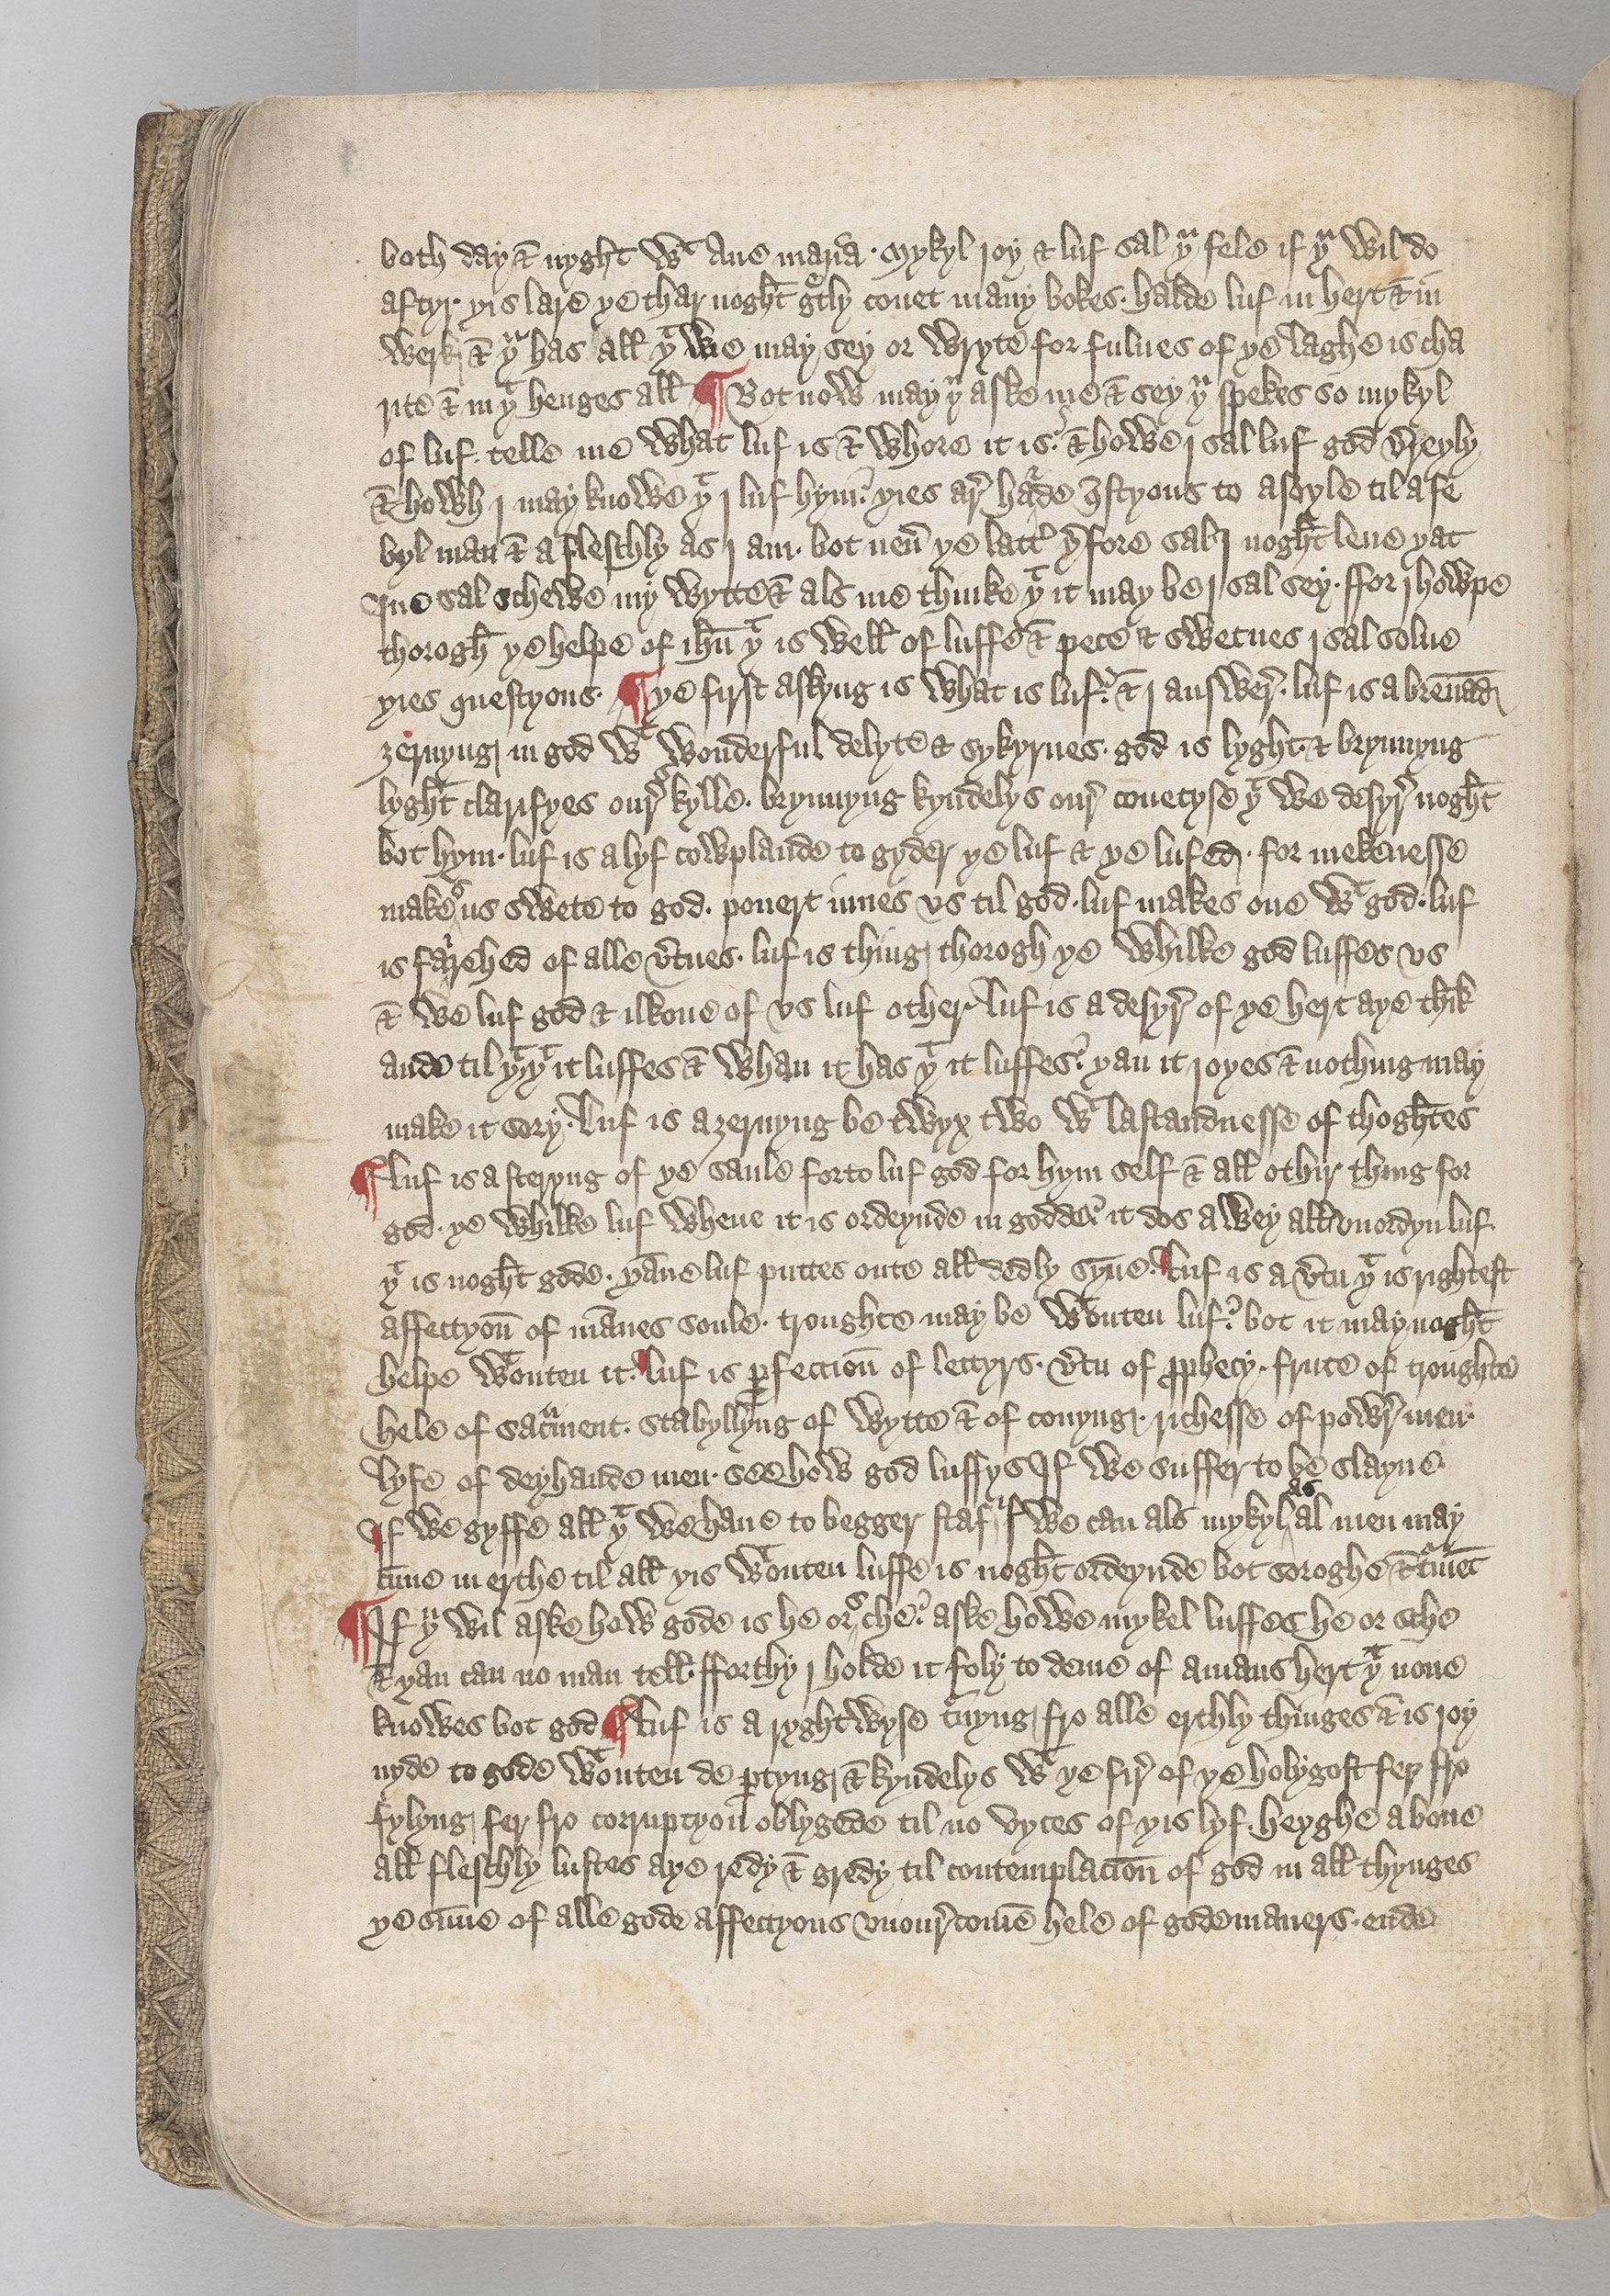 both day & nyght wᵗ Aue maria · Mykyl ioy & luf sal yᵘ fele if yᵘ wil do
aftyr yis lare ye thar noght gᵉtly couet many bokes · halde luf in hert & in
werk & yᵘ has all yᵗ we may sey or wryte for fulnes of ye laghe is cha
rite & in yᵗ henges all ¶ Bot now may yᵘ aske me & sey yᵘ spekes so mykyl
of luf · telle me what luf is & whore it is · & howe i sal luf god v̄reyly
& howh i may knowe yᵗ i luf hym · yies ar̄ harde q̄styons to asoyle til a fe
byl man & a fleschly as i am · bot neū ye latt̄ ȳfore sal i noght leue yat
Ine sal schewe my wytte & als me thinke yᵗ it may be i sal sey · ffor i howpe
thorogh ye helpe of ih̄u yᵗ is well of luffe & pece & swetnes i sal solue
yies questyons · ¶ ye first askyng is what is luf · & i answer̄ · luf is a brēnād
ȝernyng in god wᵗ wonderful delyte & sykyrnes · god is lyght & brynnyng
lyght clarifyes our̄ skylle · brynnyng kyndelys our̄ couetyse yᵗ we desyr̄ noght
bot hym · luf is a lyf cowplande to gyder ye luf & ye lufed · for mekenesse
makes us swete to god · pouert iunes vs til god · luf makes one wᵗ god · luf
is fairehed of alle v̄tues · luf is thing thorogh ye whilke god luffes vs
& we luf god & ilkone of vs luf other · Luf is a desyr̄ of ye hert aye thik
ande til yᵗ yᵗ it luffes & whan it has yᵗ it luffes · yan it ioyes & nothing may
make it sory · Luf is a ȝernyng be twyx two wᵗ lastandnesse of thoghtes
¶ Luf is a steryng of ye saule forto luf god for hym self & all othir thing for
god · ye whilke luf whene it is ordeynde in godde · it dos a wey all vnordyn luf
yᵗ is noght gode · yāne luf puttes oute all dedly syne · Luf is a v̄tu yᵗ is rightest
affectyon̄ of mānes soule · troughte may be wᵗouten luf · bot it may noght
helpe wᵗouten it · Luf is ꝑfeccion̄ of lettyrs · v̄tu of ꝓphecy · frute of troughte
hele of sacᵃment · stabyllyng of wytte & of conyng · richesse of powr̄ men ·
Lyfe of deyhande men · see how god luffys If we suffer to be slayne
If we gyffe all yᵗ we haue to begger staf · if we can als mykyl as al men may
cūne in erthe til all yis wᵗouten luffe is noght ordeynde bot soroghe & tᵘmēt
¶ If yᵘ wil aske how gode is he or sche · aske howe mykel luffes he or sche
& yan can no man tell · fforthy i holde it foly to deme of a mans hert yᵗ none
knowes bot god ¶ Luf is a ryghtwyse t̄nyng fro alle erthly thinges & is ioy
nyde to gode wᵗouten de ꝑtyng & kyndelys wᵗ ye fir̄ of ye holy gost fer fro
fylyng fer fro corrupcyon̄ oblygede til no vyces of yis lyf · heyghe aboue
all fleschly lustes aye redy & gredy til contemplacion̄ of god in all thynges
ye sūme of alle gode affectyons vnour̄comē hele of gode maners · ende